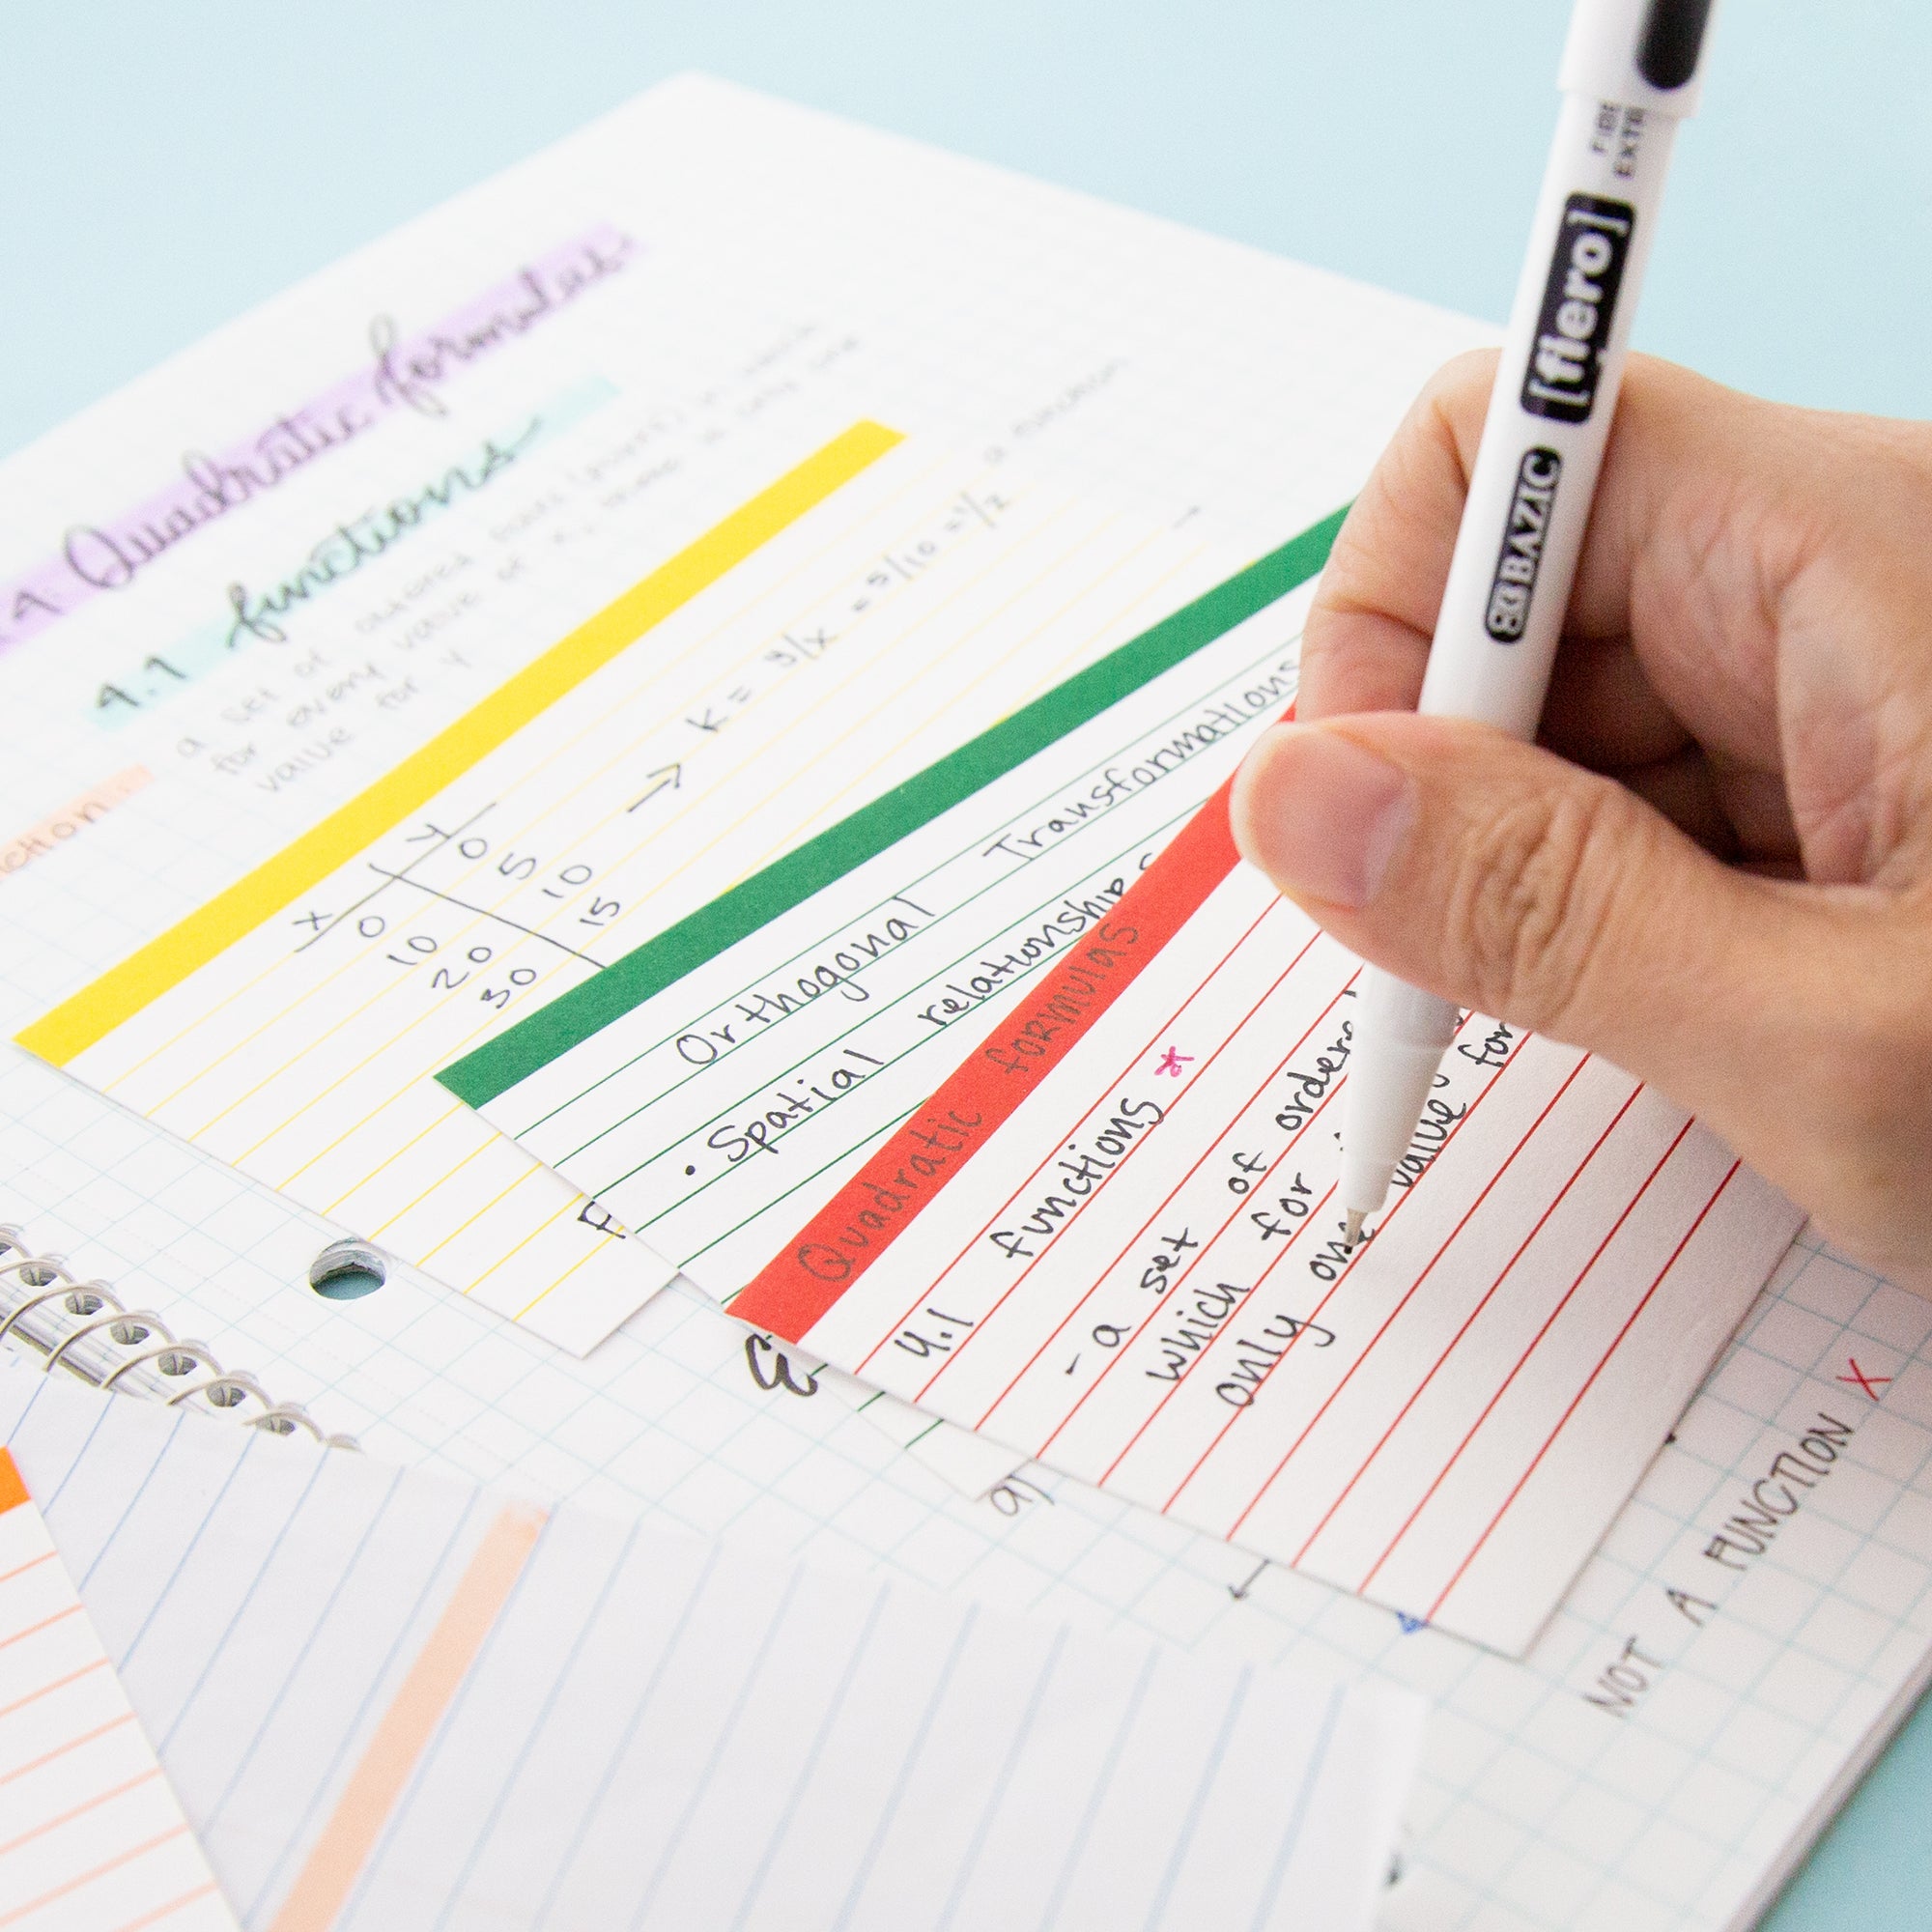 4. Quadratic formulas
4.1 functions
a set of ordered pairs (points) in which
for every value of x, there is only one
value for y
a function
x | y
0 0
10 5
20 10
30 15
→ K = y/x = 5/10 = 1/2
Orthogonal Transformations
• Spatial relationships
Quadratic formulas
4.1 functions *
- a set of ordere
which for value for
only one
a)
NOT A FUNCTION X
BAZIC [fiero]